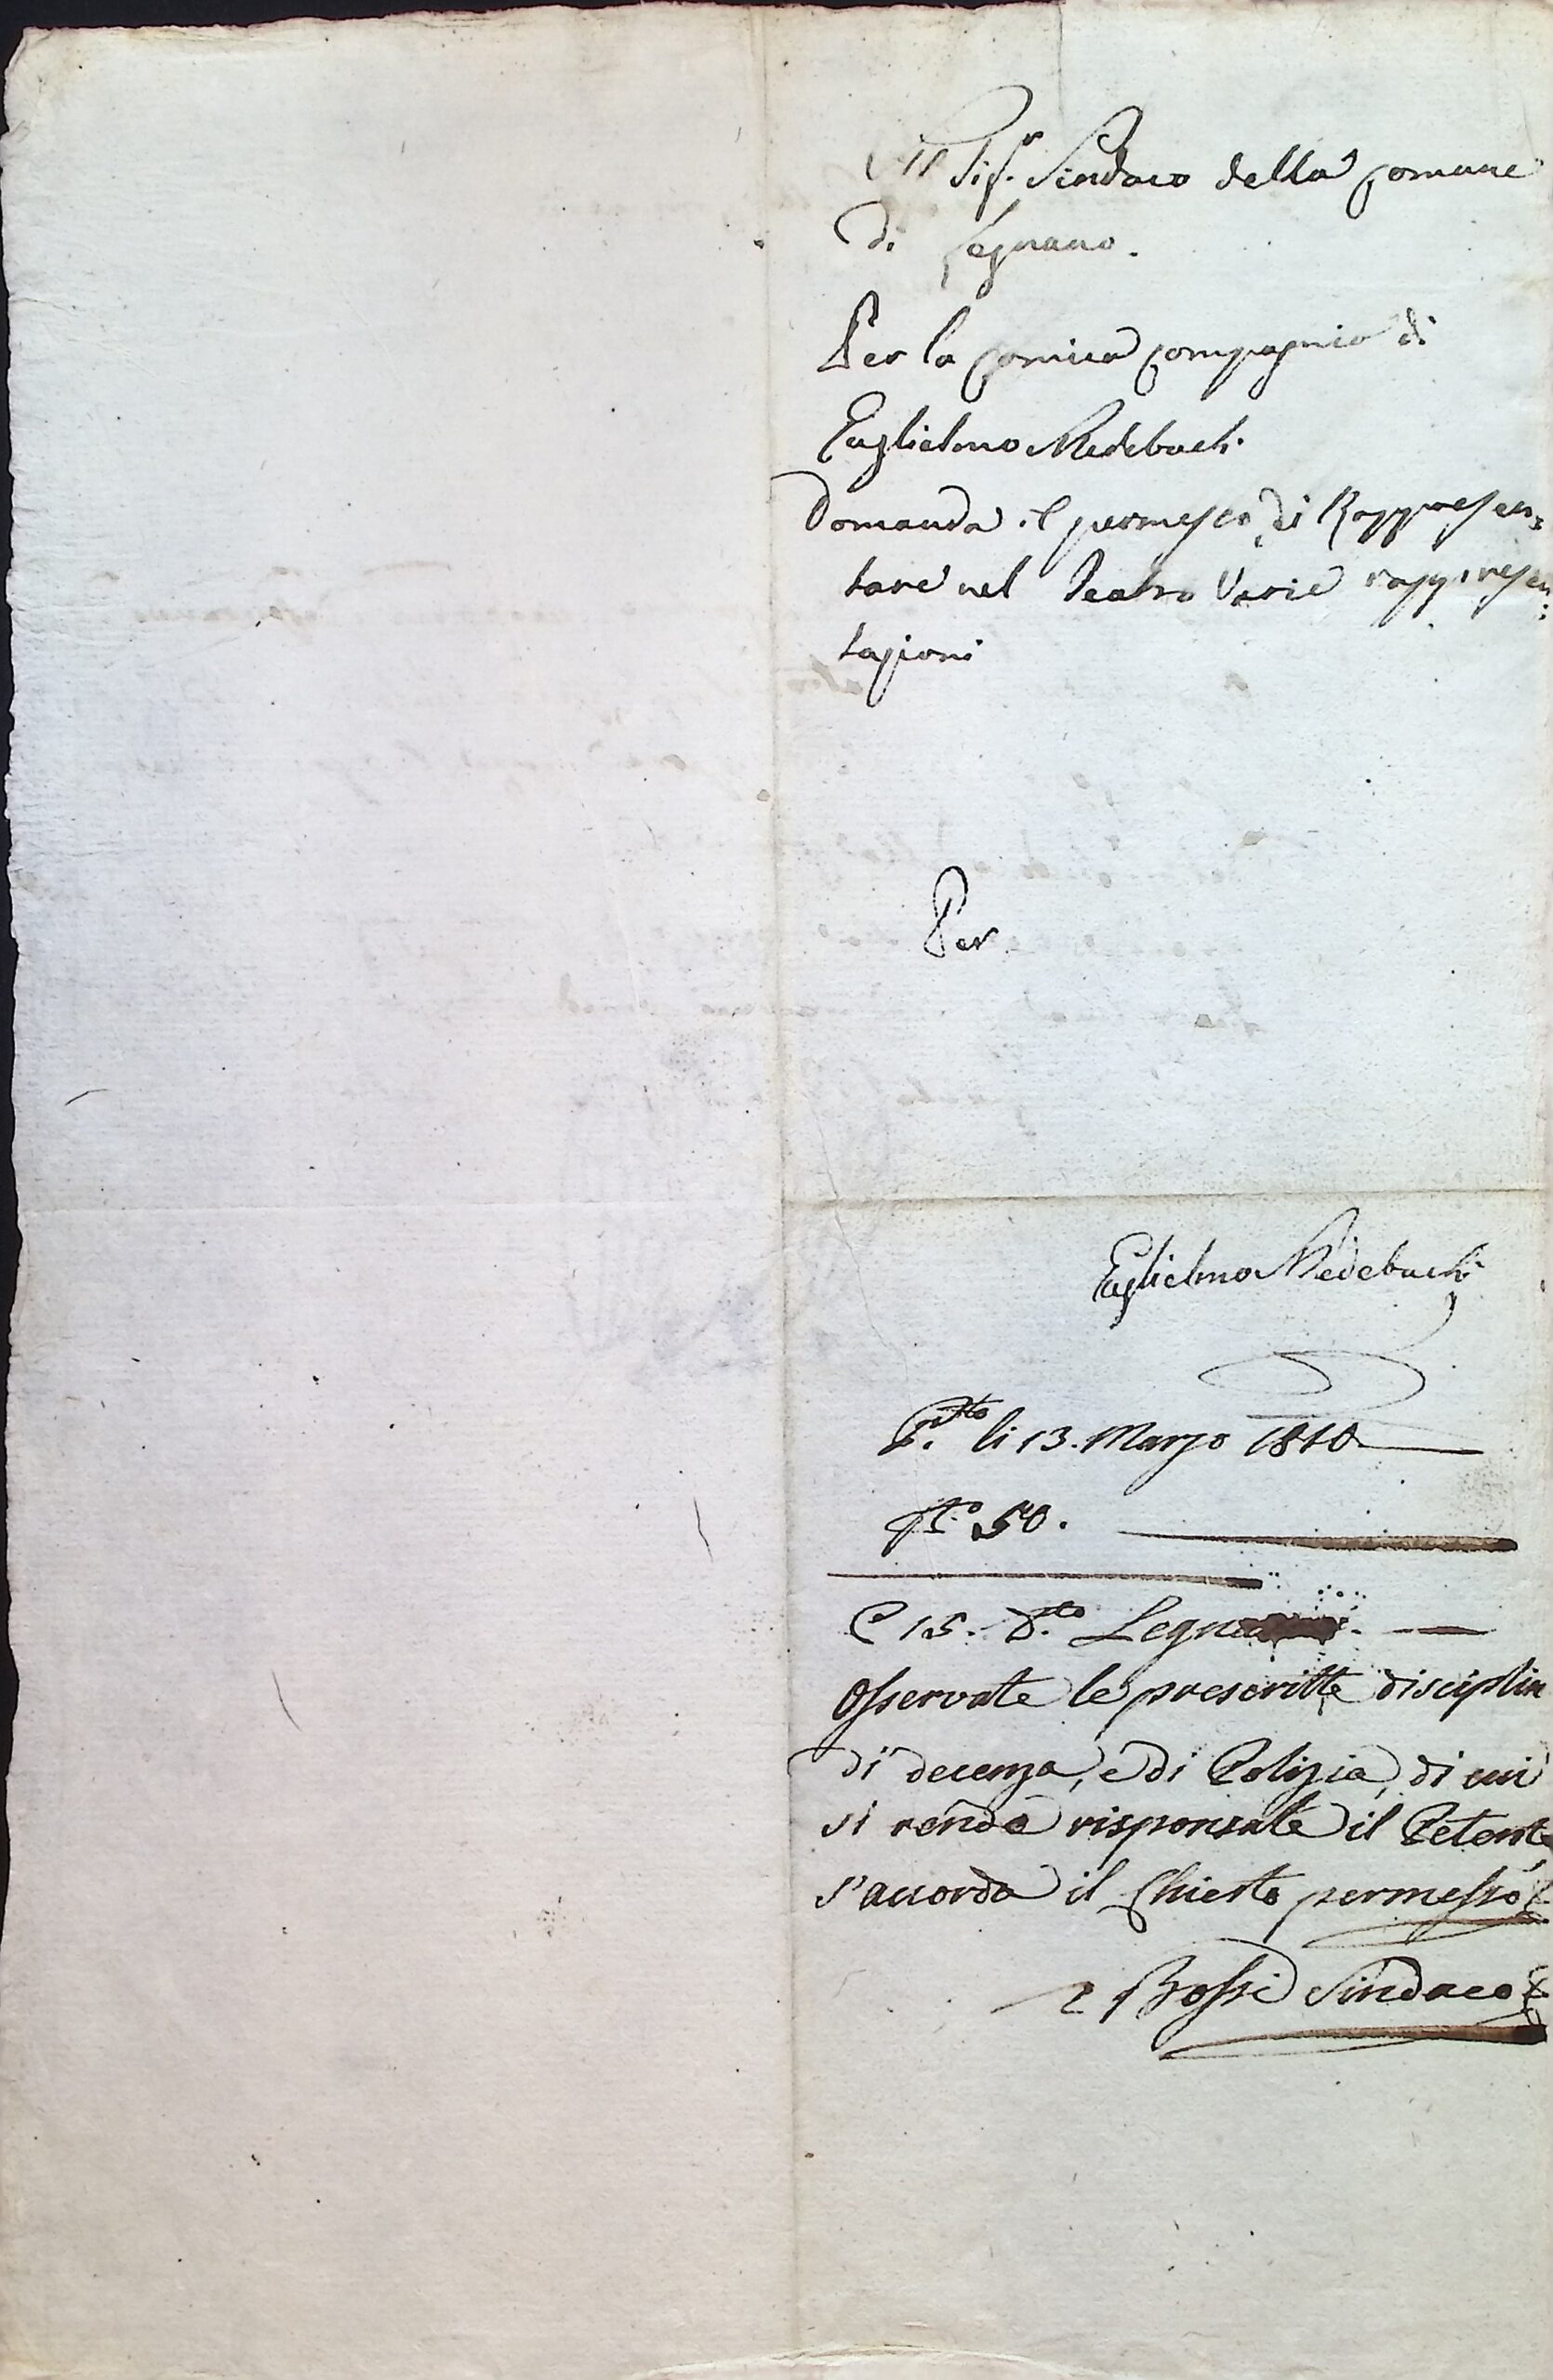 Al Sig.r Sindaco della Comune
di Legnano.
Per la Comica Compagnia di
Guglielmo Medebach
Domanda il permesso di Rappresen=
tare nel Teatro Varie rappresen=
tazioni
Per
Guglielmo Medebach
P.to li 13. Marzo 1810
N.o 50.
15. d.to Legnano
Osservate le prescritte disciplin
di decenza, e di Polizia, di cui
si rende risponsale il Petente
s'accorda il Chiesto permesso
Bossi Sindaco